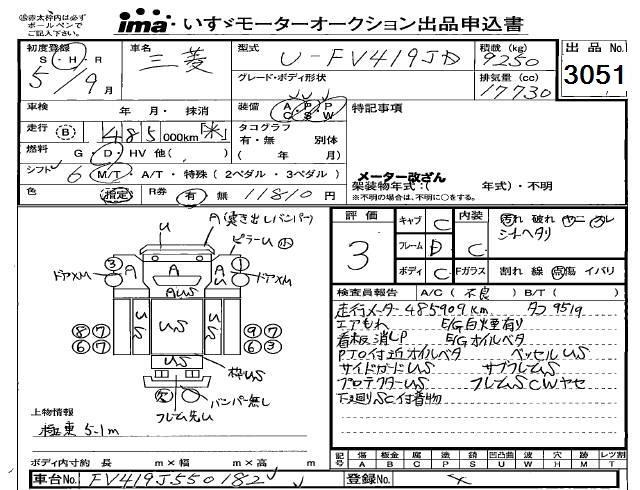 ※赤太枠内は必ず
ボールペンで
ご記入下さい。
ima・いすゞモーターオークション出品申込書
初度登録 S・H・R 5/9月
車名 三菱
型式 U-FV419JD
積載 (kg) 9250
グレード・ボディ形状
排気量 (cc) 17730
出品 No. 3051
車検 年 月・抹消
装備 A/C P/S P/W
特記事項
走行 (B) 485,000km
タコグラフ 有・無 別体
( 年 月)
燃料 G・D・HV 他( )
シフト 6 M/T・A/T・特殊(2ペダル・3ペダル)
メーター改ざん
架装物年式:( 年式)・不明
※不明の場合は、不明に○をする。
色 指定 R券 有 無 11810 円
A(突き出しバンパー)
ピラーU 小
U
ドアメU ③ A A A ① ドアメU
AUS
US US US US
⑧⑦ ⑨⑦
⑥⑦ ⑥③
US
枠US
バンパー無し
フレーム先U
上物情報
極東 5.1m
ボディ内寸約 長 m×幅 m×高 m
評価 3
キャブ C
フレーム D
ボディ C
内装 C
Fガラス
汚れ 破れ ヤニ スレ
シートヘタリ
割れ 線 点傷 イバリ
検査員報告 A/C( 不良 ) B/T( )
走行メーター485909km タコ951g
エアもれ E/G白煙有り
看板消しP E/Gオイルベタ
PTO付近オイルベタ ベッセルUS
サイドガードUS サブフレームS
プロテクターUS フレームSCWヤセ
下廻りSC付着物
記号 傷 板金 腐 塗 錆 凹凸曲 波 穴 跡 レツ割
A B C P S U W H M T
車台No. FV419J550182
登録No.